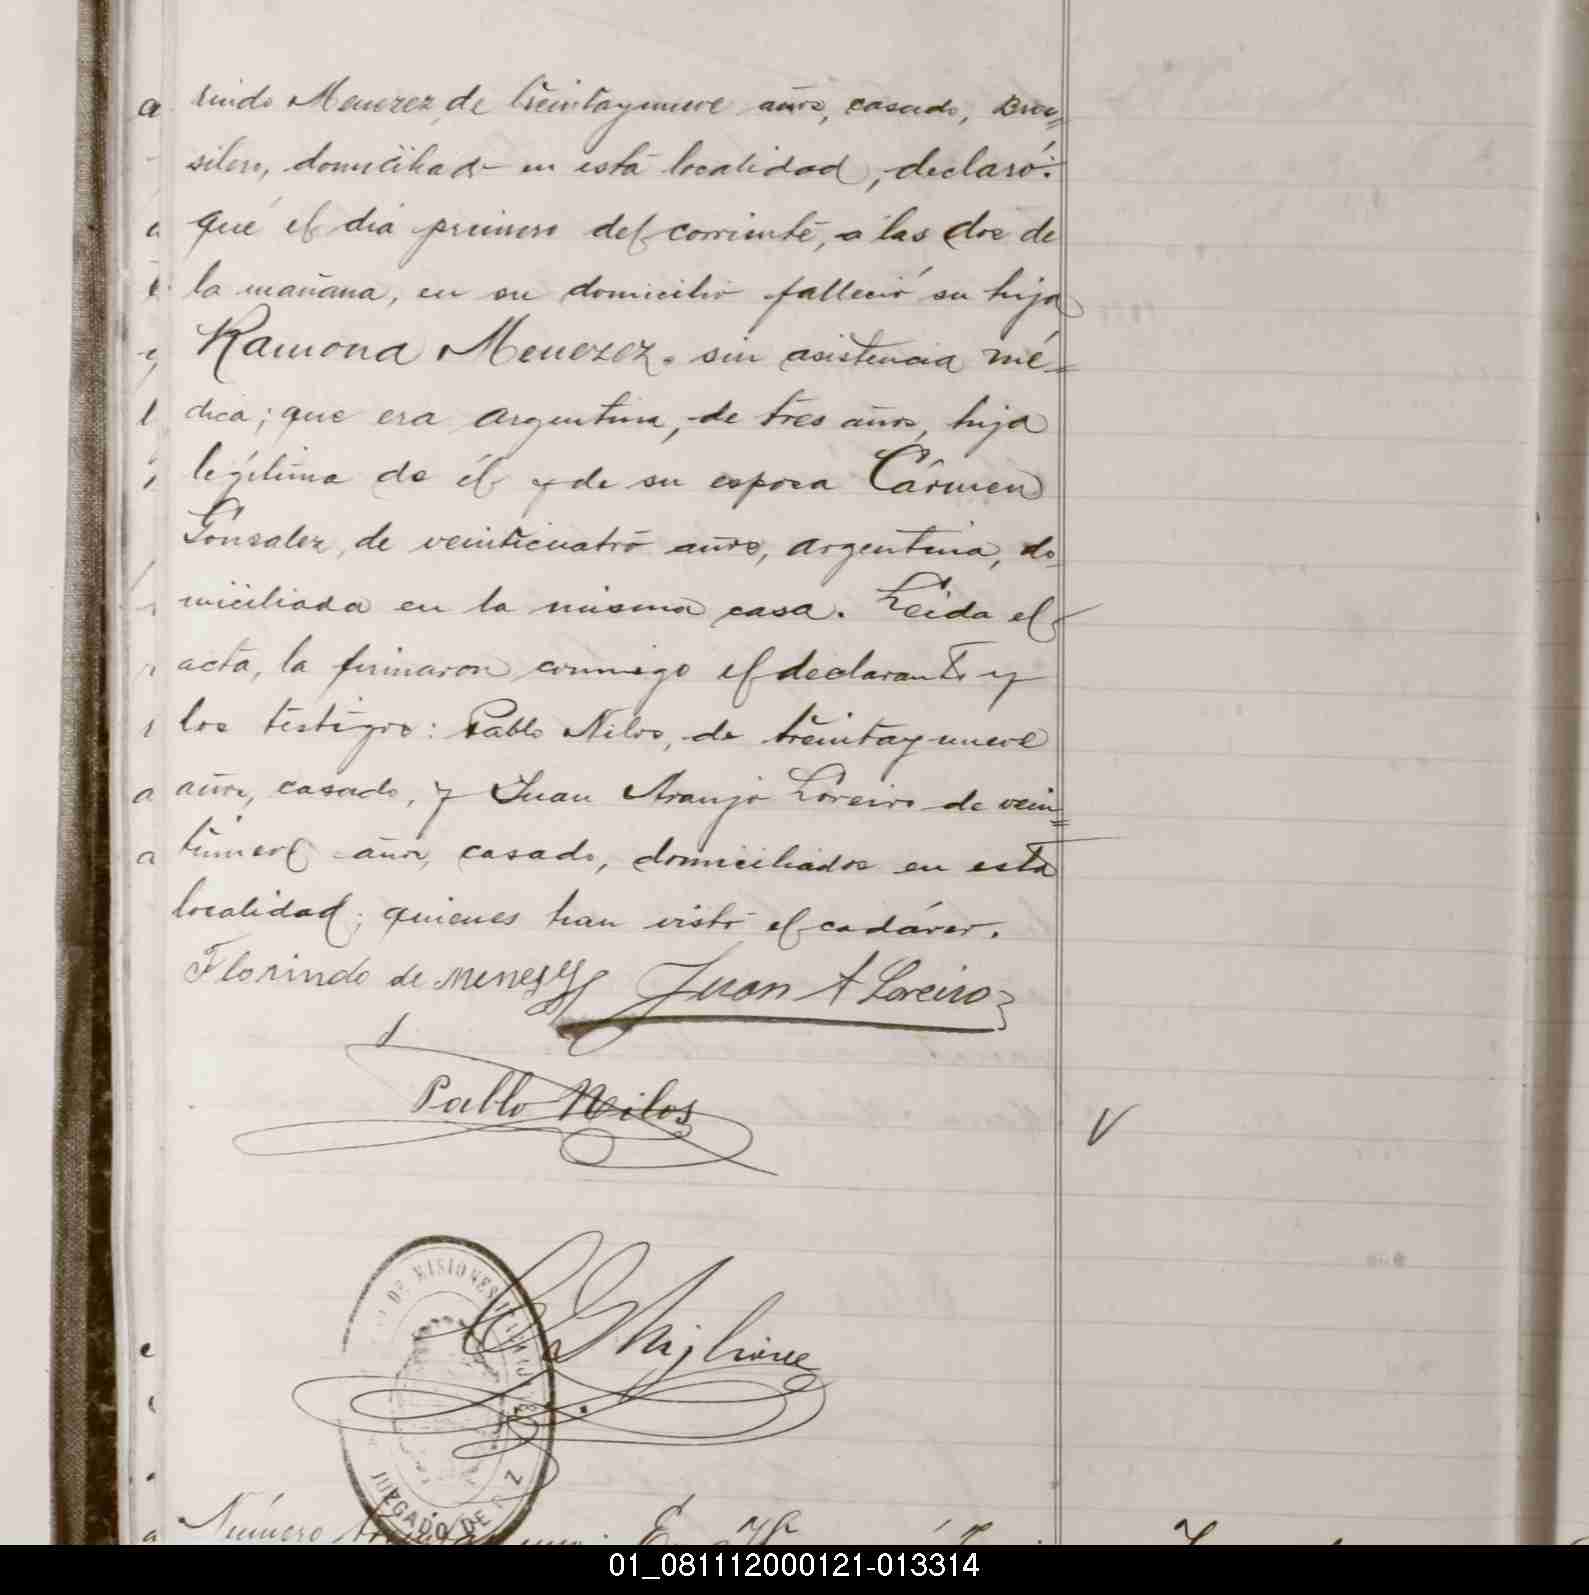 rindo Menezez, de treintaynueve años, casado, Bra=
silero, domiciliado en esta localidad, declaró:
que el dia primero del corriente, a las dos de
la mañana, en su domicilio falleció su hija
Ramona Menezez. sin asistencia mé=
dica; que era argentina, de tres años, hija
legítima de él y de su esposa Cármen
Gonsalez, de veinticuatro años, argentina, do
miciliada en la misma casa. Leida el
acta, la firmaron conmigo el declarante y
los testigos: Pablo Nilos, de treintaynueve
años, casado, y Juan Araujo Loreiro de vein=
tinueve años, casado, domiciliados en esta
localidad; quienes han visto el cadáver.
Florindo de Menezez Juan A Loreiro
Pablo Nilos
Migliore
DE MISIONES
JUZGADO DE PAZ
Número
01_081112000121-013314